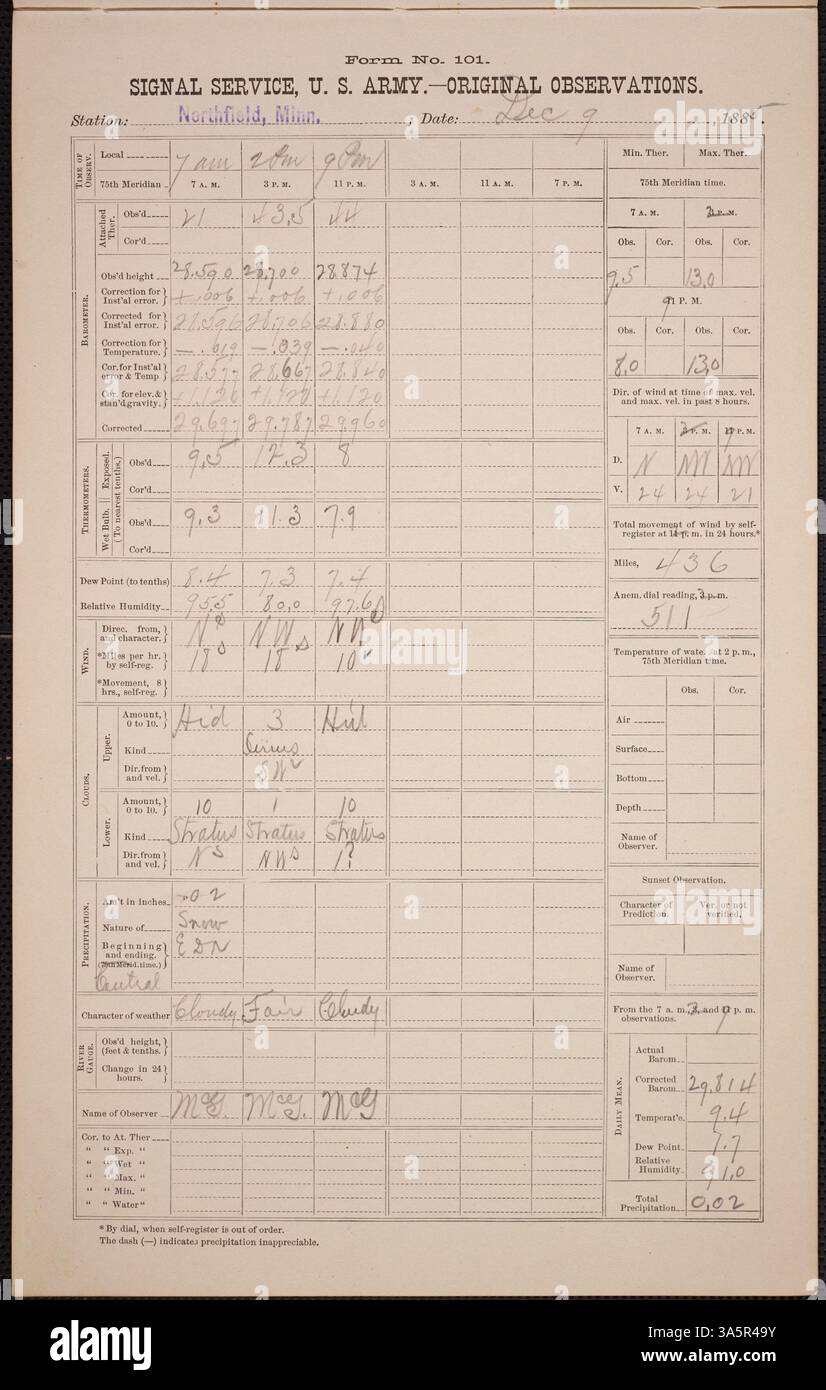 Form No. 101.
SIGNAL SERVICE, U. S. ARMY.—ORIGINAL OBSERVATIONS.
Station: Northfield, Minn. , Date: Dec 9 , 1885.
TIME OF OBSERV.
Local 7 am 2 Pm 9 Pm
75th Meridian 7 A. M. 3 P. M. 11 P. M. 3 A. M. 11 A. M. 7 P. M.
BAROMETER.
Attached Ther.
Obs'd 21 43.5 44
Cor'd
Obs'd height 28.590 28.700 28.874
Correction for Inst'al error. +.006 +.006 +.006
Corrected for Inst'al error. 28.596 28.706 28.880
Correction for Temperature. —.019 —.039 —.040
Cor. for Inst'al error & Temp 28.577 28.667 28.840
Cor. for elev. & stan'd gravity. +1.120 +1.120 +1.120
Corrected 29.697 29.787 29.960
THERMOMETERS.
Exposed. (To nearest tenths.)
Obs'd 9.5 12.3 8
Cor'd
Wet Bulb.
Obs'd 9.3 11.3 7.9
Cor'd
Dew Point (to tenths) 8.4 7.3 7.4
Relative Humidity 95.5 80.0 97.6
WIND.
Direc. from, and character. N NW NW
*Miles per hr. by self-reg. 18 18 10
*Movement, 8 hrs., self-reg.
CLOUDS.
Upper.
Amount, 0 to 10. Hid 3 Hid
Kind Cirrus
Dir. from and vel. SW
Lower.
Amount, 0 to 10. 10 1 10
Kind Stratus Stratus Stratus
Dir. from and vel. N S NW S 1?
PRECIPITATION.
Am't in inches. .02
Nature of Snow
Beginning and ending. (75th Merid. time.) E DN
Central
Character of weather Cloudy Fair Cloudy
RIVER GAUGE.
Obs'd height, (feet & tenths.
Change in 24 hours.
Name of Observer McG. McG. McG
Cor. to At. Ther
" " Exp. "
" " Wet "
" " Max. "
" " Min. "
" " Water "
*By dial, when self-register is out of order.
The dash (—) indicates precipitation inappreciable.
Min. Ther. Max. Ther.
75th Meridian time.
7 A. M. 3 P. M.
Obs. Cor. Obs. Cor.
9.5 13.0
9 11 P. M.
Obs. Cor. Obs. Cor.
8.0 13.0
Dir. of wind at time of max. vel. and max. vel. in past 8 hours.
7 A. M. 3 P. M. 11 P. M.
D. N NW NW
V. 24 24 21
Total movement of wind by self-register at 11 p. m. in 24 hours.*
Miles, 436
Anem. dial reading, 3 p. m.
511
Temperature of water at 2 p. m., 75th Meridian time.
Obs. Cor.
Air
Surface
Bottom
Depth
Name of Observer.
Sunset Observation.
Character of Prediction. Ver. or not verified.
Name of Observer.
From the 7 a. m., 3, and 11 p. m. observations.
DAILY MEAN.
Actual Barom.
Corrected Barom. 29.814
Temperat'e. 9.4
Dew Point. 7.7
Relative Humidity. 91.0
Total Precipitation. 0.02
alamy
3A5R49Y
www.alamy.com